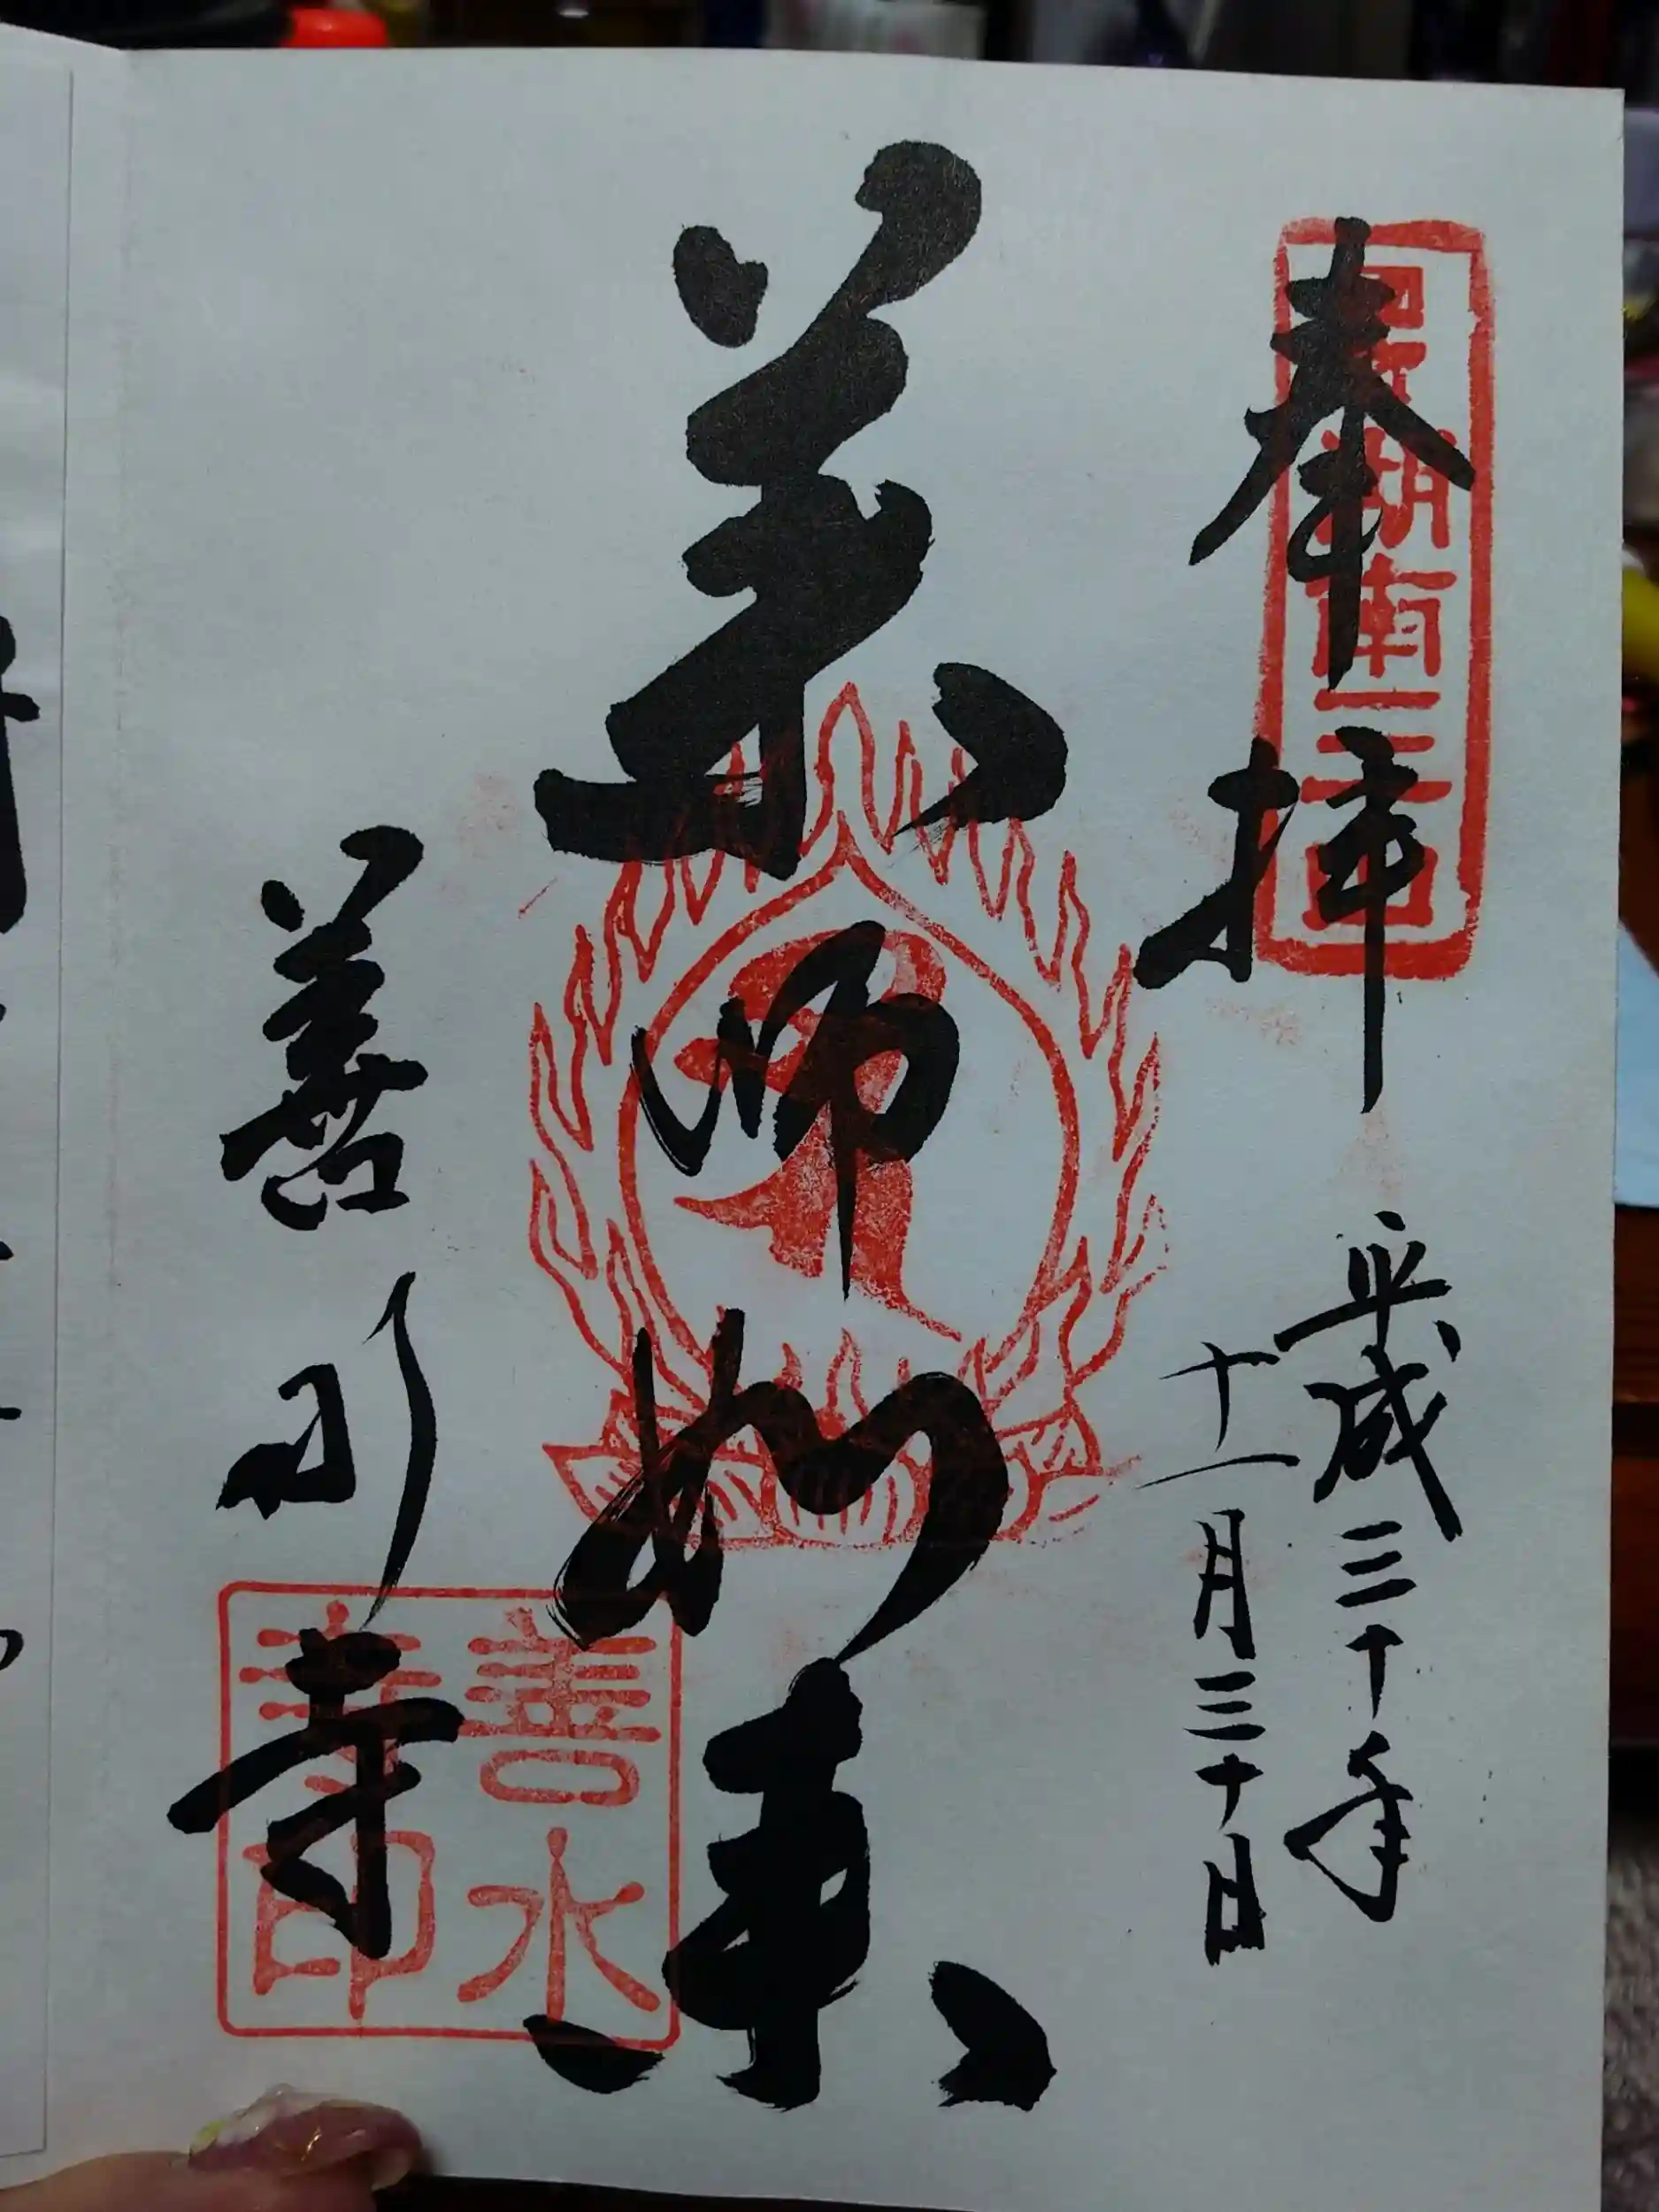 奉拝
平成三十年
十一月三十日
薬師如来
善水寺
湖南三山
善水
寺印